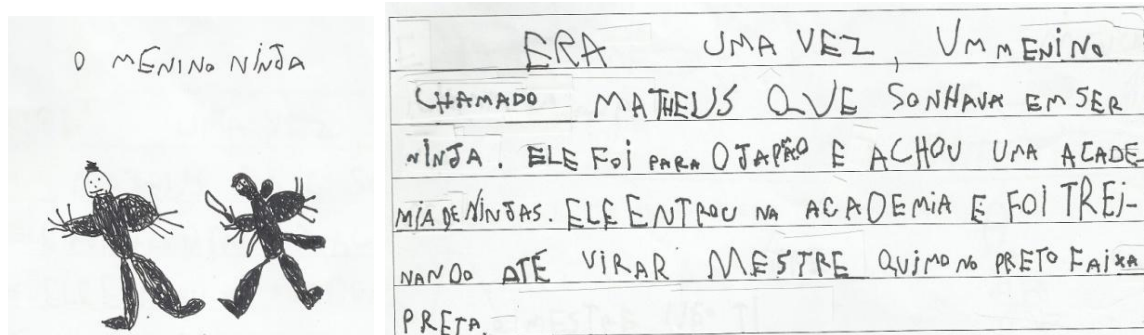 O MENINO NINJA
ERA UMA VEZ, UM MENINO
CHAMADO MATHEUS QUE SONHAVA EM SER
NINJA. ELE FOI PARA O JAPÃO E ACHOU UMA ACADE
MIA DE NINJAS. ELE ENTROU NA ACADEMIA E FOI TREI-
NANDO ATÉ VIRAR MESTRE QUIMONO PRETO FAIXA
PRETA.